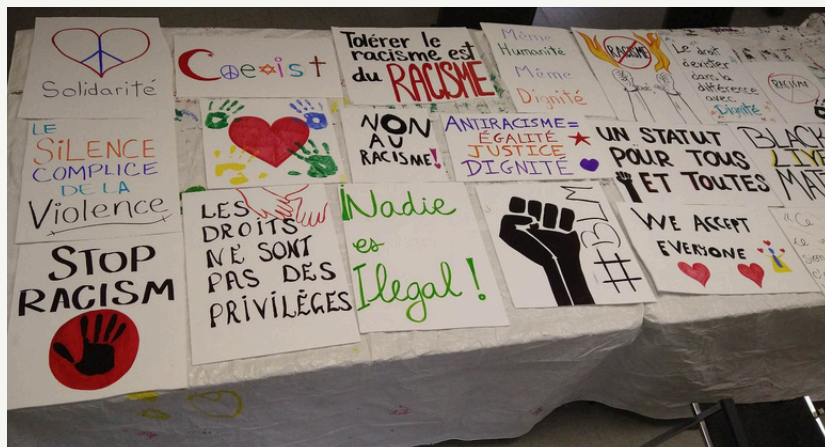 Solidarité
Coexist
Tolérer le
racisme est
du RACISME
Même
Humanité
Même
Dignité
RACISME
Le droit
d'exister
dans la
différence
avec
Dignité
RACISM
LE
SILENCE
COMPLICE
DE LA
Violence
NON
AU
RACISME!
ANTIRACISME=
ÉGALITÉ
JUSTICE
DIGNITÉ
UN STATUT
POUR TOUS
ET TOUTES
BLACK
LIVE
MAT
STOP
RACISM
LES
DROITS
NE SONT
PAS DES
PRIVILÈGES
Nadie
es
Ilegal!
#BLM
WE ACCEPT
EVERYONE